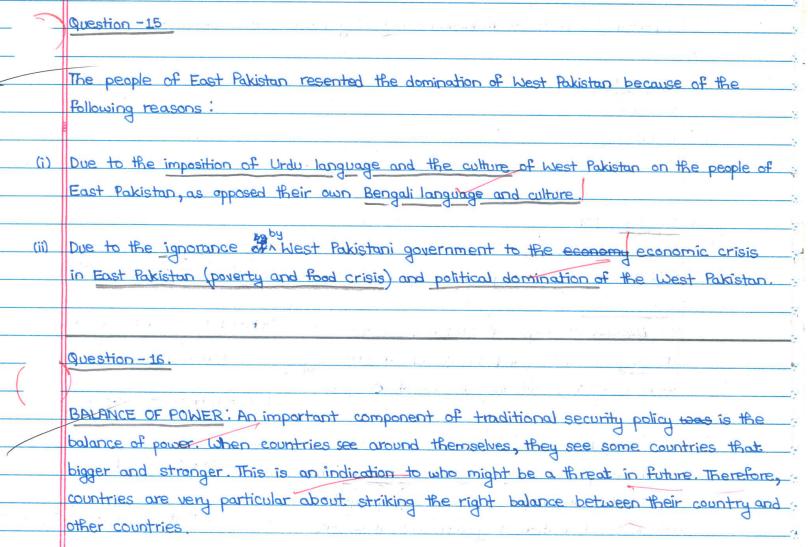 Question - 15
The people of East Pakistan resented the domination of West Pakistan because of the
following reasons :
(i) Due to the imposition of Urdu language and the culture of West Pakistan on the people of
East Pakistan, as opposed their own Bengali language and culture.
(ii) Due to the ignorance by West Pakistani government to the economy economic crisis
in East Pakistan (poverty and food crisis) and political domination of the West Pakistan.
Question - 16.
BALANCE OF POWER: An important component of traditional security policy was is the
balance of power. When countries see around themselves, they see some countries that
bigger and stronger. This is an indication to who might be a threat in future. Therefore,
countries are very particular about striking the right balance between their country and
other countries.